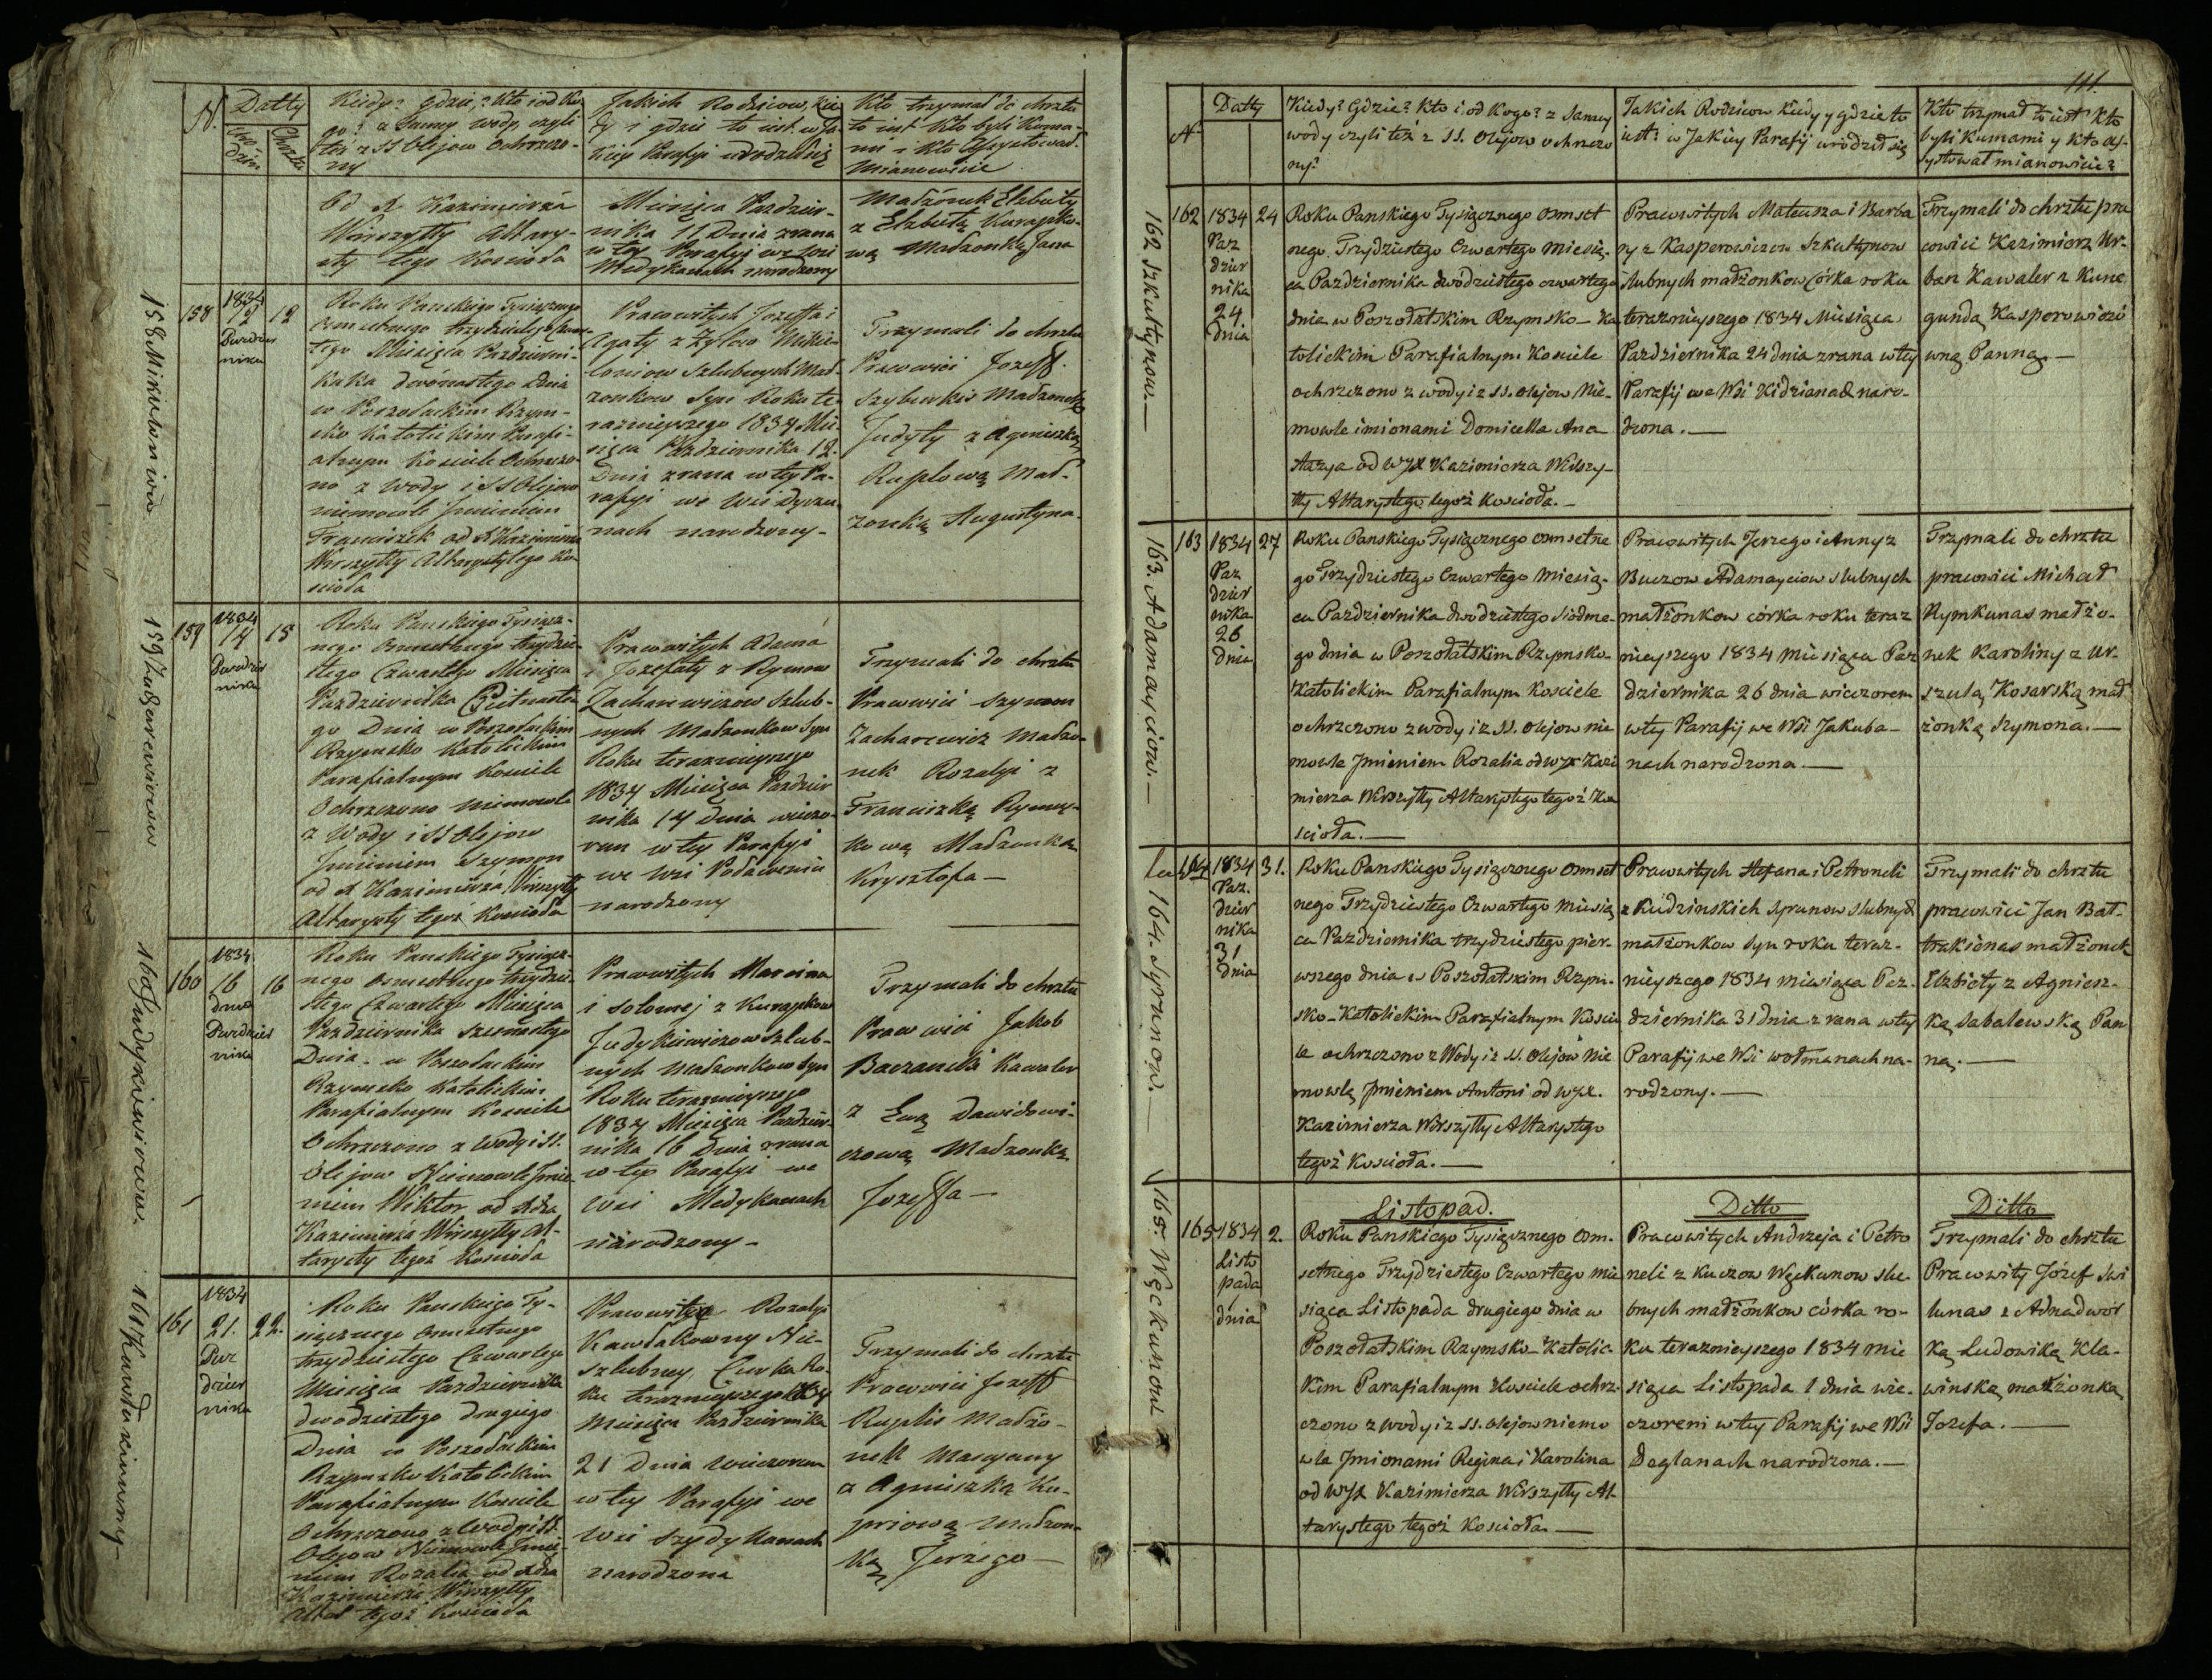 N.
Datty
Urodzin
Chrztu
Kiedy? gdzie? Kto i od Ko
go? z Samey wody czyli
też z SS Olejow Ochrzczo-
ny
Jakich Rodzicow, Kie
dy i gdzie to iest w Ja
kiey Parafji urodził się
Kto trzymał do chrztu
to iest Kto byli Kuma-
mi i Kto Assystował
Mianowicie
Od X Kazimierza
Wirszyłły Altary-
sty tego Kościoła
Miesiąca Pazdzier-
nika 11 Dnia zrana
w tey Parafji we Wsi
Medykanach narodzony
Małżonek Elzbiety
z Elzbietą Kurapko-
wą Małzonką Jana
158 Mikiwłoniow
158
1834
12
Pazdzier
nika
12
Roku Panskiego Tysiącznego
Osmsetnego trzydziestego Czwar-
tego Miesiąca Pazdzierni-
ka dwónastego Dnia
w Poszołackim Rzym-
sko Katolickim Parafi-
alnym Kosciele Ochrzczo-
no z Wody i SS Olejow
niemowle Jmieniem
Franciszek od X Kazimierza
Wirszyłły Altarysty tego Ko
scioła
Pracowitych Jozeffa i
Agaty z Zylow Mikie-
loniow Szlubnych Mał-
zonkow Syn Roku te-
razniejszego 1834 Mie-
siąca Pazdziernika 12.
Dnia zrana w tey Pa-
rafji we Wsi Dyrzu-
nach narodzony-
Trzymali do chrztu
Pracowici Jozeff
Szylewkis Małzonek
Judyty z Agnieszką
Ruplową Mał-
zonką Augustyna
159 Zacharewiczow
159
1834
14
Pazdzier
nika
15
Roku Panskiego Tysiącz-
nego Osmsetnego trzydzie-
stego Czwartego Miesiąca
Pazdziernika Piętnaste-
go Dnia w Poszołackim
Rzymsko Katolickim
Parafialnym Kosciele
Ochrzczono niemowle
z Wody i SS Olejow
Jmieniem Szymon
od X Kazimierza Wirszyłły
Altarysty tegoż Kościoła
Pracowitych Adama
i Jozefaty z Rymow
Zacharewiczow Szlub-
nych Małzonkow Syn
Roku terazniejszego
1834 Miesiąca Pazdzier
nika 14 Dnia wieczo-
rem w tey Parafji
we Wsi Podaweniu
narodzony
Trzymali do chrztu
Pracowici Szymon
Zacharewicz Małzo-
nek Rozalji z
Franciszką Rymu-
kową Małzonką
Krysztofa-
160 Judykiewiczow.
160
1834
16
dnia
Pazdzier
nika
16
Roku Panskiego Tysiącz-
nego Osmsetnego trzydzie-
stego Czwartego Miesiąca
Pazdziernika Szesnastego
Dnia w Poszołackim
Rzymsko Katolickim
Parafialnym Kosciele
Ochrzczono z Wody i SS.
Olejow Niemowle Jmie-
niem Wiktor od Xdza
Kazimierza Wirszyłły Al-
tarysty tegoż Kościoła
Pracowitych Marcina
i Solomej z Kurapkow
Judykiewiczow Szlub-
nych Małzonkow Syn
Roku terazniejszego
1834 Miesiąca Pazdzier-
nika 16 Dnia zrana
w tey Parafji we
Wsi Medykanach
narodzony-
Trzymali do chrztu
Pracowici Jakob
Baczanski Kawaler
z Ewą Dawidowi-
czową Małzonką
Jozeffa-
161 Kawdakiowny-
161
1834
21.
Paz
dzier
nika
22.
Roku Panskiego Ty-
siącznego Osmsetnego
trzydziestego Czwartego
Miesiąca Pazdziernika
dwodziestego drugiego
Dnia w Poszołackim
Rzymsko Katolickim
Parafialnym Kosciele
Ochrzczono z Wody i SS.
Olejow Niemowle Jmie-
niem Rozalia od Xdza
Kazimierza Wirszyłły
Altar tegoż Kościoła
Pracowitey Rozalji
Kawdakowny Nie-
szlubney, Curka Ro-
ku terazniejszego 1834
Miesiąca Pazdziernika
21 Dnia Wieczorem
w tey Parafji we
Wsi Szydykanach
narodzona
Trzymali do chrztu
Pracowici Jozeff
Ruplis Małżo-
nek Maryany
z Agnieszką Ku-
priową Małzon-
ką Jerzego-
111.
N
Datty
Kiedy? Gdzie? Kto i od Kogo? z Samey
wody czyli też z SS. Olejow ochrzczo
ny?
Jakich Rodzicow Kiedy y gdzie to
iest? w Jakiey Parafij urodził się
Kto trzymał to iest Kto
byli Kumami y Kto as-
systował mianowicie?
162 Szkultynow.-
162
1834
Paz
dzier
nika
24
dnia
24
Roku Panskiego Tysiącznego Osmset
nego Trzydziestego Czwartego Miesią-
ca Pazdziernika dwódziestego czwartego
dnia w Poszołatskim Rzymsko-Ka
tolickim Parafialnym Kosciele
ochrzczono z wody i z SS. Olejow Nie-
mowle imionami Domicella Ana
stazya od WJX Kazimierza Wirszy-
łły Altarystego tegoż Koscioła.-
Pracowitych Mateusza i Barba
ry z Kasperowiczow Szkultynow
slubnych małżonkow Córka roku
teraznieyszego 1834 Miesiąca
Pazdziernika 24 dnia zrana w tey
Parafij we Wsi Kidzianach naro-
dzona.-
Trzymali do chrztu pra
cowici Kazimierz Ur-
ban Kawaler z Kune
gundą Kasperowiczó
wną Panną-
163. Adamayciow.-
163
1834
Paz
dzier
nika
26
dnia
27
Roku Panskiego Tysiącznego Osmsetne
go Trzydziestego Czwartego Miesią-
ca Pazdziernika dwodziestego Siodme-
go dnia w Poszołatskim Rzymsko-
Katolickim Parafialnym Kosciele
ochrzczono z wody i z SS. Olejow nie
mowle Jmieniem Rozalia od WJX Kazi
mierza Wirszyłły Altarystego tegoż Ko
scioła.-
Pracowitych Jerzego i Anny z
Buczow Adamayciow slubnych
małżonkow córka roku teraz
nieyszego 1834 Miesiąca Paz
dziernika 26 dnia wieczorem
w tey Parafij we Wsi Jakuba-
nach narodzona.-
Trzymali do chrztu
pracowici Michał
Rymkunas małżo-
nek Karoliny z Ur-
szulą Kosarską mał
żonką Szymona.-
164. Syrunow.-
164
1834
Paz.
dzier
nika
31
dnia
31.
Roku Panskiego Tysiącznego Osmset
nego Trzydziestego Czwartego Miesią
ca Pazdziernika trzydziestego pier-
wszego dnia w Poszołatskim Rzym-
sko-Katolickim Parafialnym Koscie
le ochrzczono z Wody i z SS. Olejow Nie
mowlę Jmieniem Antoni od WJX.
Kazimierza Wirszyłły Altarystego
tegoż Koscioła.-
Pracowitych Stefana i Petroneli
z Rudzinskich Syrunow slubnych
małżonkow Syn roku teraz-
nieyszego 1834 miesiąca Paz-
dziernika 31 dnia z rana w tey
Parafij we Wsi wołmanach na-
rodzony.-
Trzymali do chrztu
pracowici Jan Bał-
trukionas małżonek
Elzbiety z Agniesz-
ką Sabalewską Pan
ną.-
165. Węckunow
Listopad.
Ditto
Ditto
165
1834
Listo
pada
dnia
2.
Roku Panskiego Tysiącznego Osm-
setnego Trzydziestego Czwartego mie
siąca Listopada drugiego dnia w
Poszołatskim Rzymsko-Katolic-
kim Parafialnym Kosciele ochrz-
czono z wody i z SS. Olejow niemo
wle Jmionami Regina i Karolina
od WJX Kazimierza Wirszyłły Al-
tarystego tegoż Koscioła.-
Pracowitych Andrzeja i Petro
neli z Kuczow Węckunow slu-
bnych małżonkow córka ro-
ku teraznieyszego 1834 mie
siąca Listopada 1 dnia wie-
czorem w tey Parafij we Wsi
Daglanach narodzona.-
Trzymali do chrztu
Pracowity Józef Swi
lunas z Adnadwor
ką Ludowiką Kla-
winską małżonką
Jozefa.-